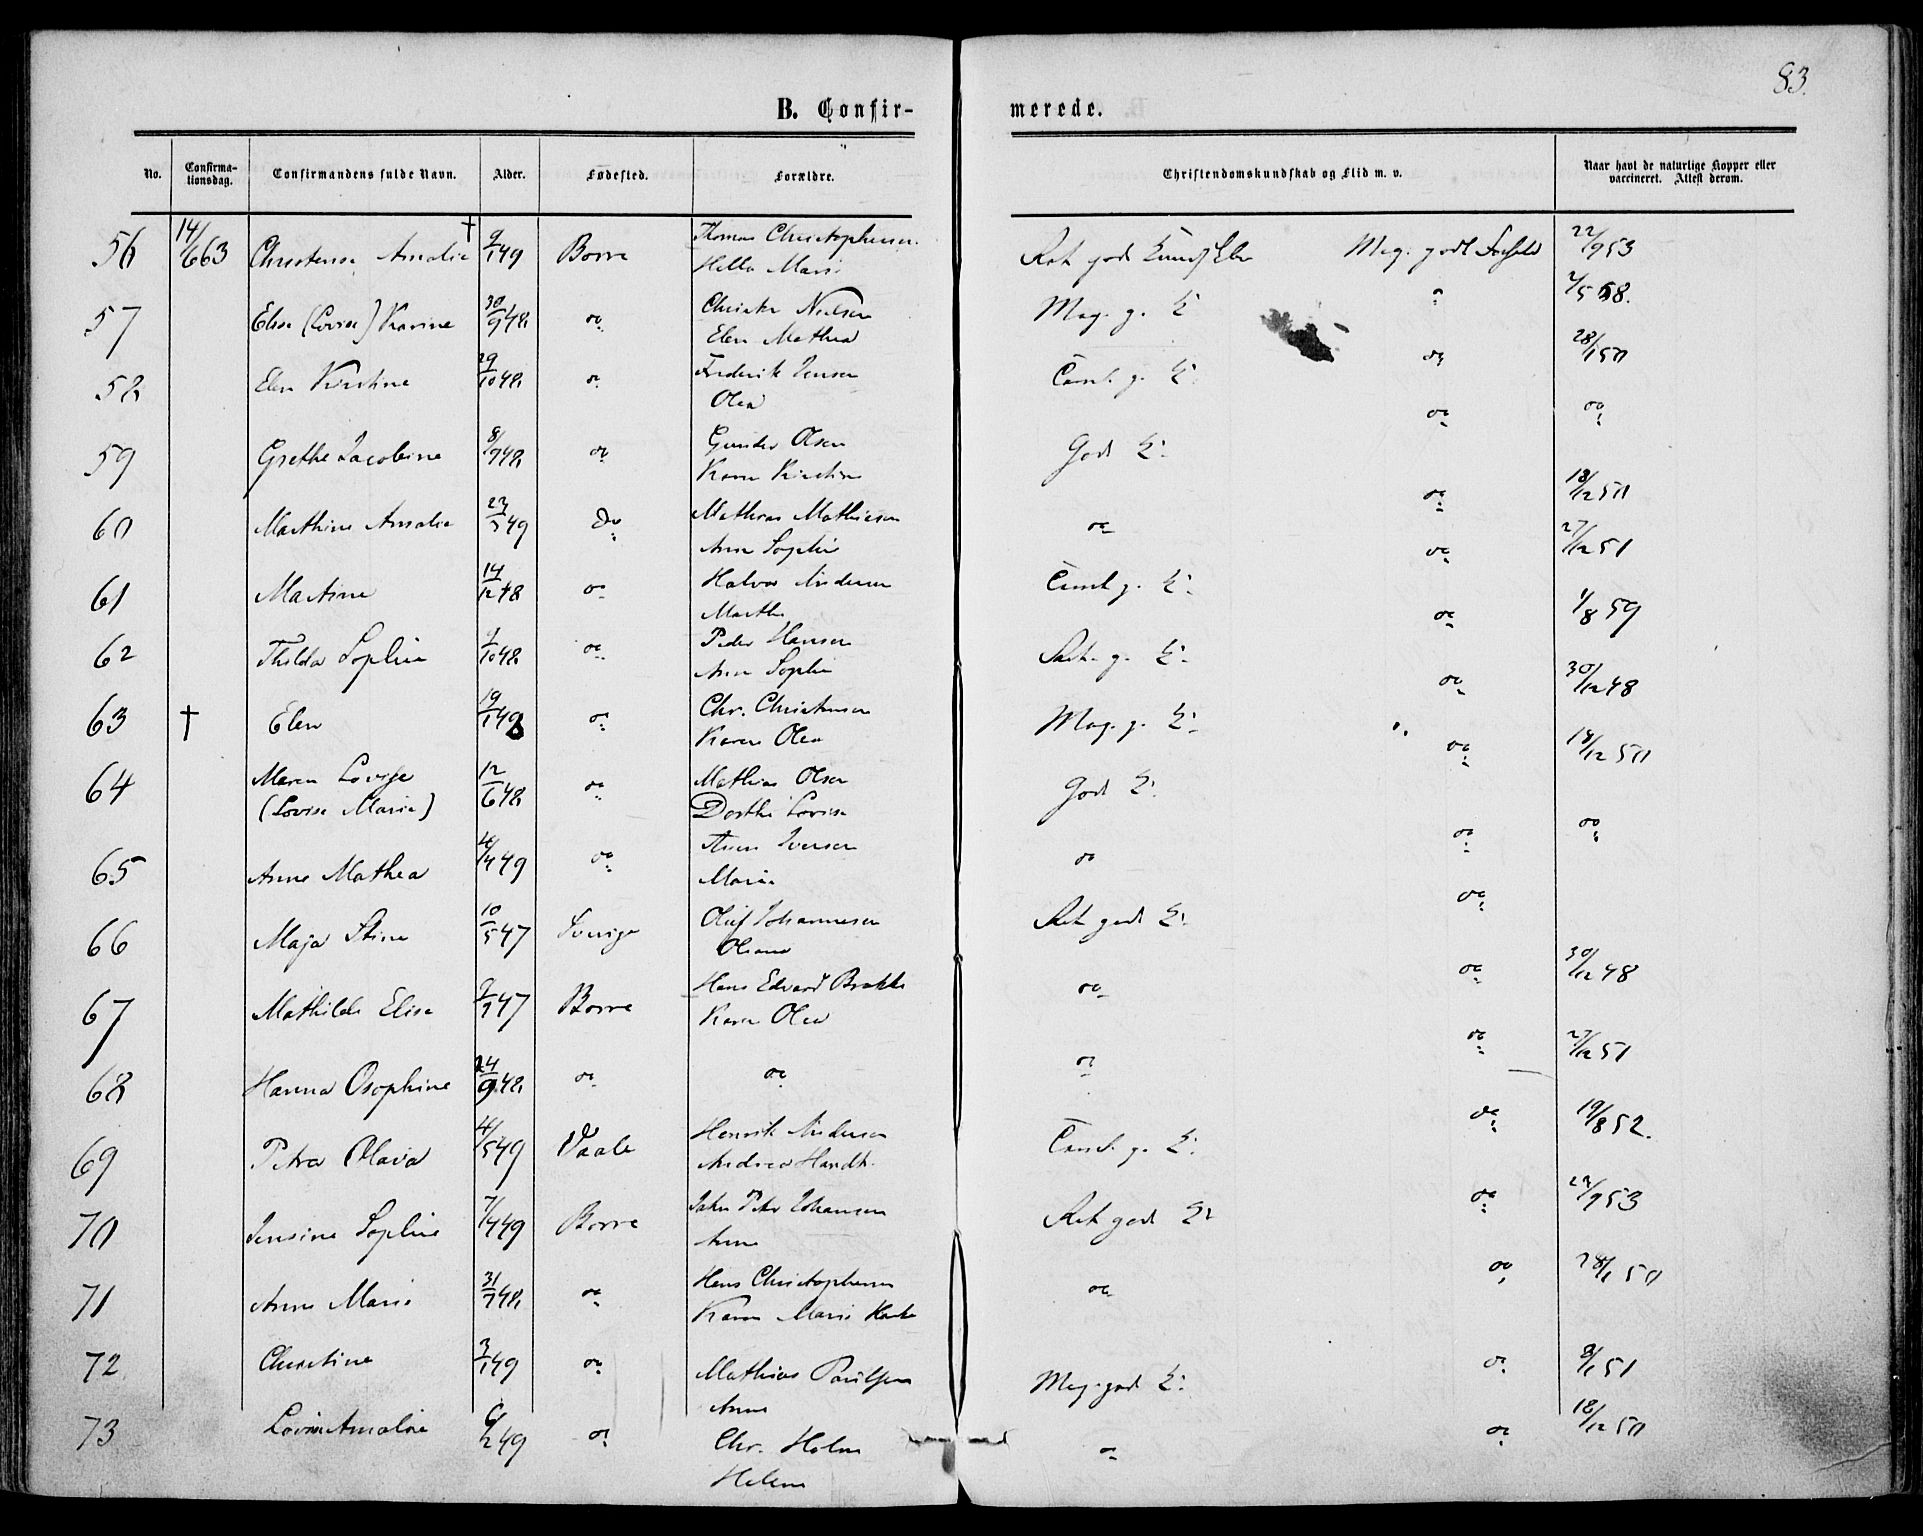 83.
B. Confir- merede.
No. Confirma-tionsdag. Confirmandens fulde Navn. Alder. Fødested. Forældre. Christendomskundskab og Flid m. v. Naar havt de naturlige Kopper eller vaccineret. Attest derom.
56 14/6 63 Christense Amalie † 9/1 49 Borre Thomas Christophersen Meg. godt Forhold 22/9 53
Helle Marie
57 Elise (Lovise) Karine 30/9 48 do Christen Nielsen Meg. g. K
Elen Mathea
58 Elen Kirstine 29/10 48 do Frederik Jensen Teml. g. K. do 28/1 50
Olea
59 Grethe Jacobine 8/7 48 do Gunder Olsen God K: do do
Karen Kirstine
60 Marthine Amalie 23/3 49 do Mathias Mathiesen do do 18/12 50
Anne Sophie
61 Martine 14/12 48 do Halvor Andersen Teml g. K: do 27/12 51
Marthe
62 Thilda Sophie 9/10 48 do Peder Hansen Ret. g. K: do 1/8 59
Anne Sophie
63 † Elen 19/1 48 do Chr. Christensen Meg. g. K: do 30/12 48
Karen Olea
64 Maren Lovise 12/6 48 do Mathias Olsen God K: do 18/12 50
(Lovise Marie) Dorthe Lovise
65 Anne Mathea 4/4 49 do Iversen do do do
Marie
66 Maja Stine 10/5 47 Sverige Oluf Johannesen Ret god K: do
67 Mathilde Elise 9/7 47 Borre Hans Edvard Brekke do do 30/12 48
Karen Olea
68 Hanna Osophine 24/9 48 do do do do 27/12 51
69 Petra Olava 4/5 49 Vaale Henrik Andersen Teml. g. K: do 19/8 52.
Andrea
70 Jensine Sophie 7/4 49 Borre Peter Johansen Ret god K: do 22/9 53
Anne
71 Anne Marie 31/7 48 do Hans Christophersen do do 28/1 50
Karen Marie
72 Christine 3/1 49 do Mathias Paulsen Meg. god K: do 8/1 51
Anne
73 Lovise Amalie /2 49 do Chr. Holm do do 18/12 50
Helene